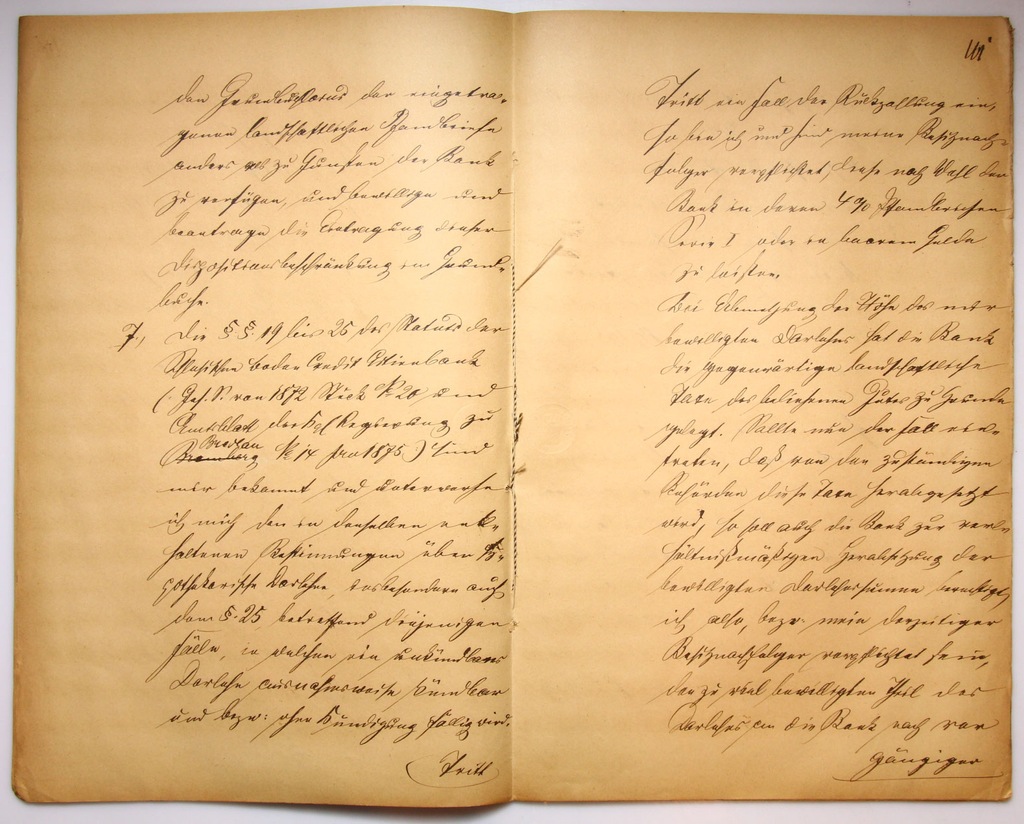 den Grundbuchamt der eingetra-
genen landschaftlichen Pfandbriefe
anders als zu Gunsten der Bank
zu verfügen, und bewillige und
beantrage die Eintragung dieser
Dispositionsbeschränkung im Grund-
buche.
7., Die §§. 19 bis 25 des Statuts der
Schlesischen Boden Credit Actienbank
(Ges. S. von 1872 Stück No 20 und
Amtsblatt der Kgl. Regierung zu
Breslau
Bromberg No 14 pro 1875.) sind
mir bekannt und unterwerfe
ich mich den in denselben ent-
haltenen Bestimmungen über hy-
pothekarische Darlehne, insbesondere auch
dem §. 25, betreffend diejenigen
Fälle, in welchen ein unkündbares
Darlehn ausnahmsweise kündbar
und bezw: ohne Kündigung fällig wird.
Tritt
Tritt ein Fall der Rückzahlung ein,
so bin ich und sind meine Besitznach-
folger verpflichtet, diese nach Wahl der
Bank in deren 4% Pfandbriefen
Serie I oder in baarem Gelde
zu leisten.
Bei Abmessung der Höhe des mir
bewilligten Darlehns hat die Bank
die gegenwärtige landschaftliche
Taxe des beliehenen Gutes zu Grunde
gelegt. Sollte nun der Fall ein-
treten, daß von den zuständigen
Behörden diese Taxe herabgesetzt
wird, so soll auch die Bank zur ver-
hältnißmäßigen Herabsetzung der
bewilligten Darlehnssumme berechtigt,
ich also, bezw. mein derzeitiger
Besitznachfolger verpflichtet sein,
den zu viel bewilligten Theil des
Darlehns an die Bank nach vor
gängiger